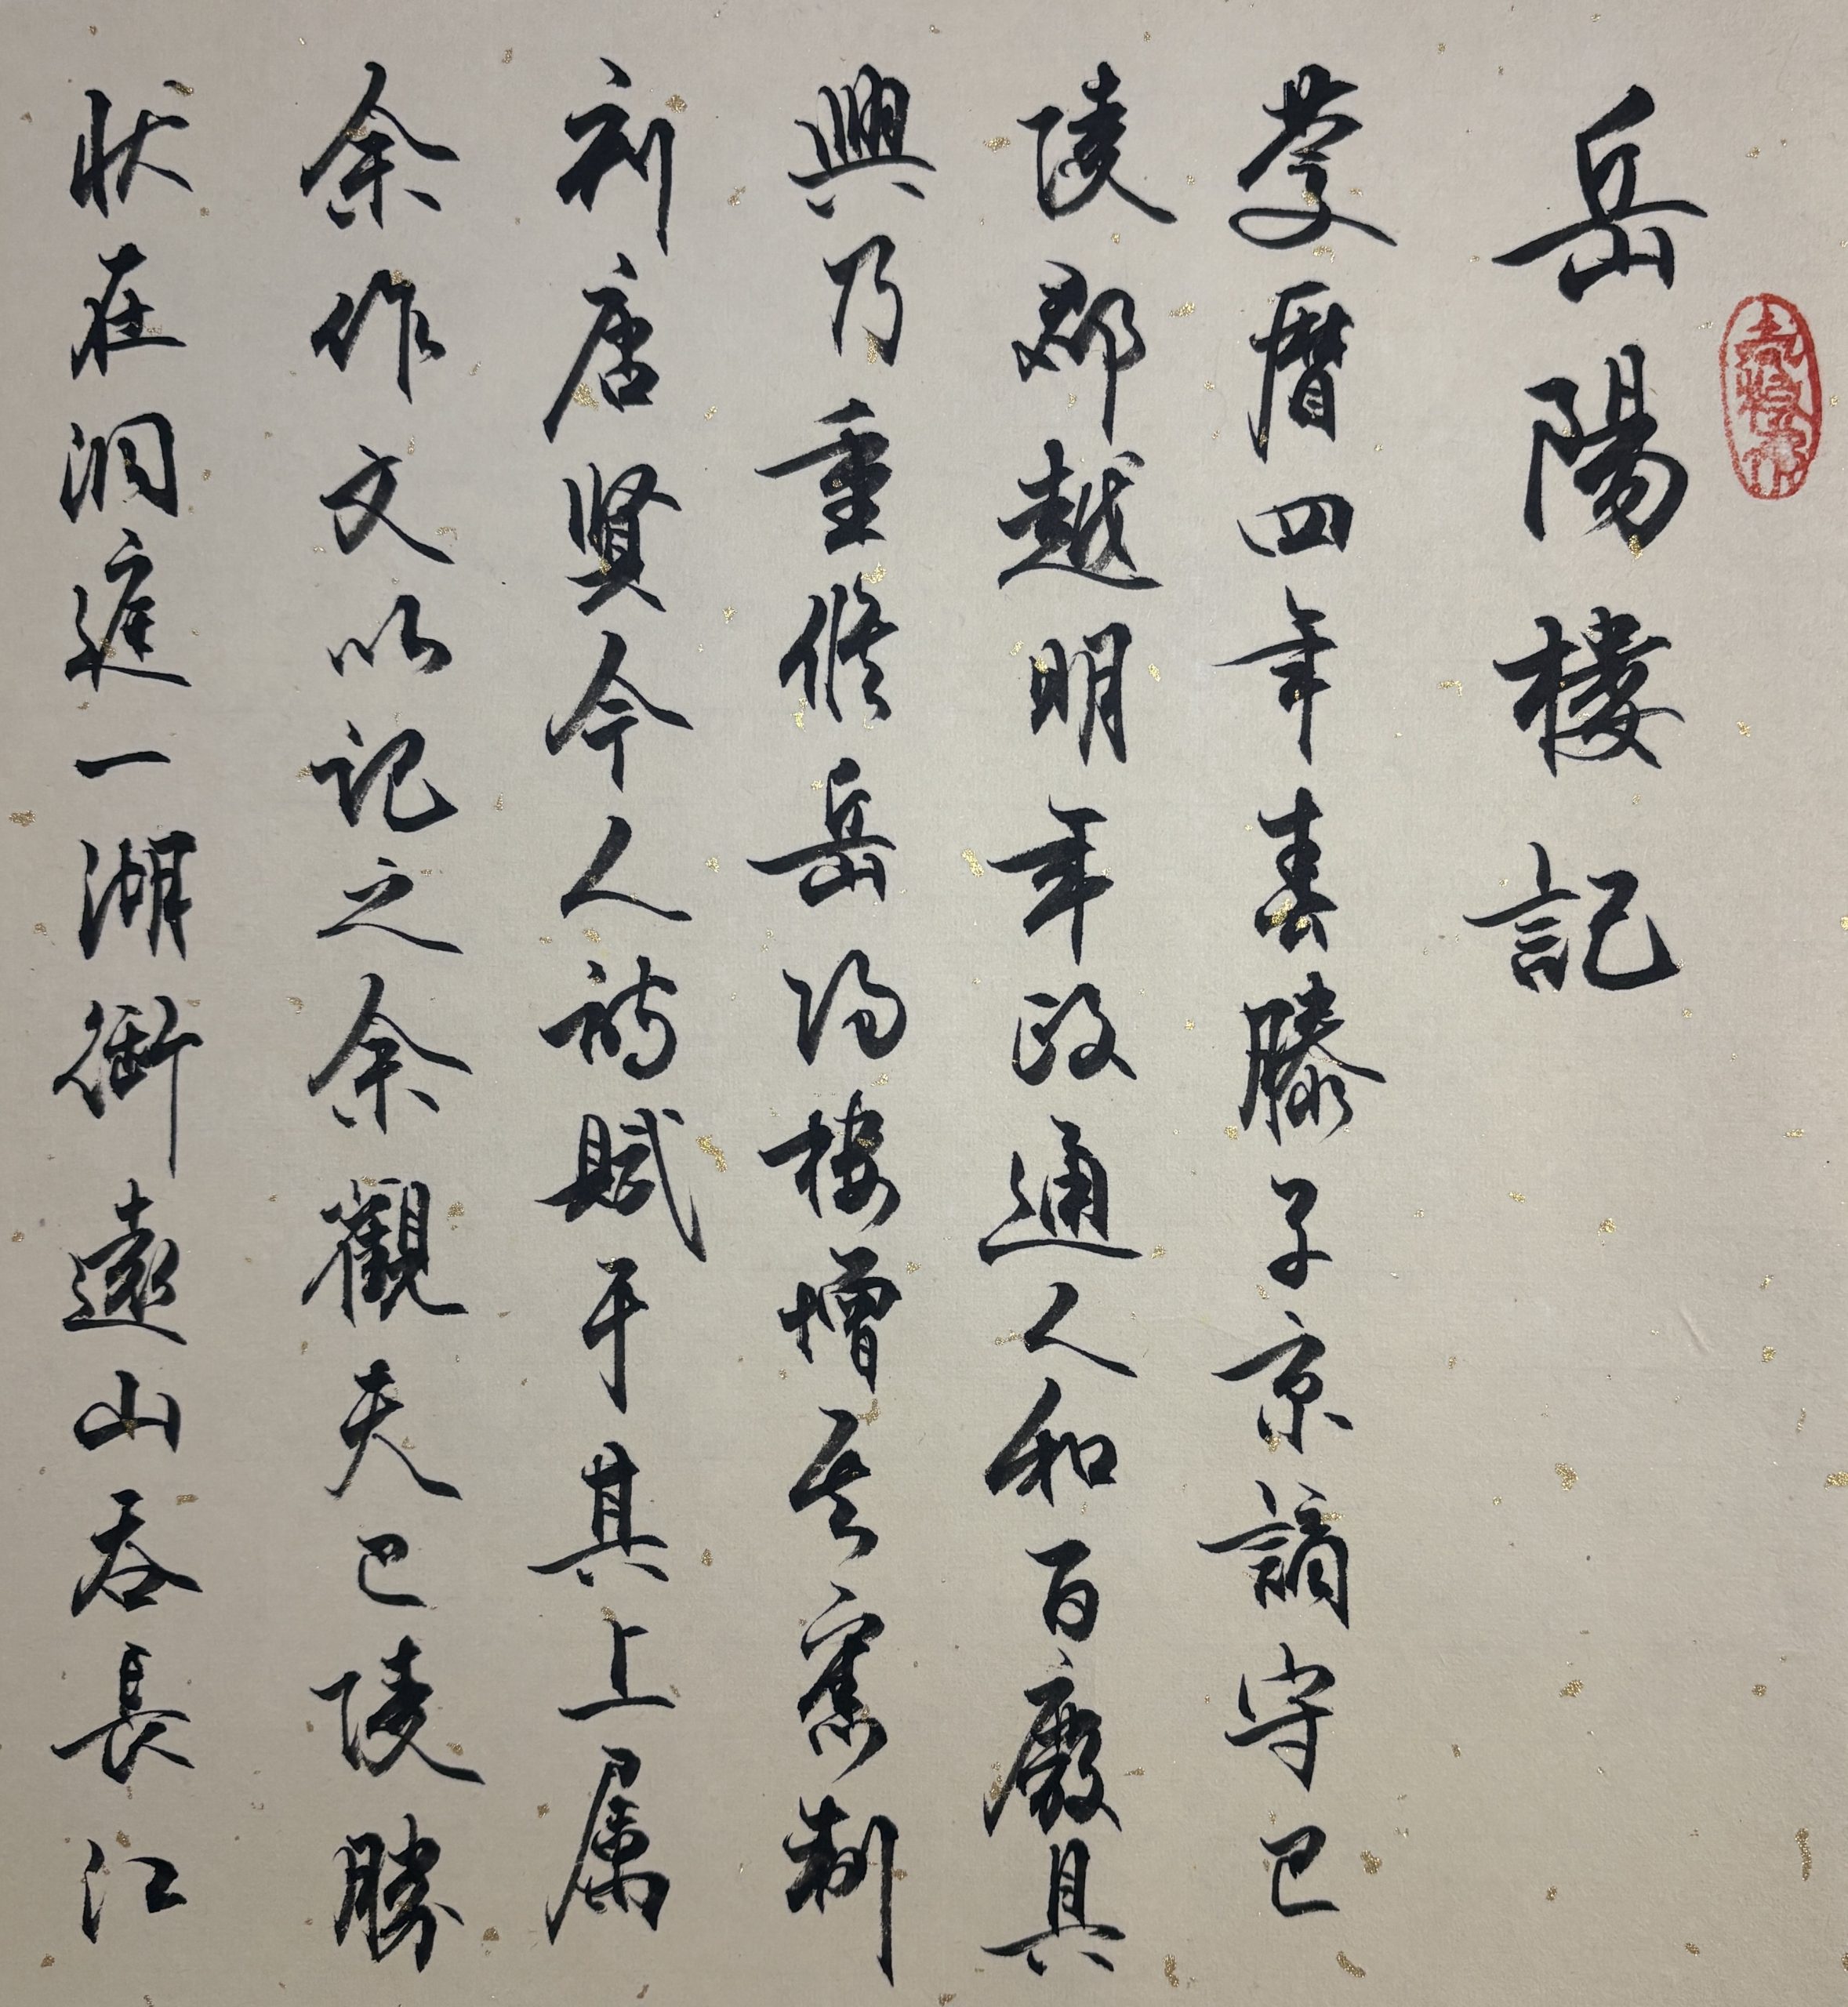 岳陽樓記
慶曆四年春滕子京謫守巴
陵郡越明年政通人和百廢具
興乃重修岳陽樓增其舊制
刻唐賢今人詩賦于其上属
余作文以記之余觀夫巴陵勝
狀在洞庭一湖銜遠山吞長江